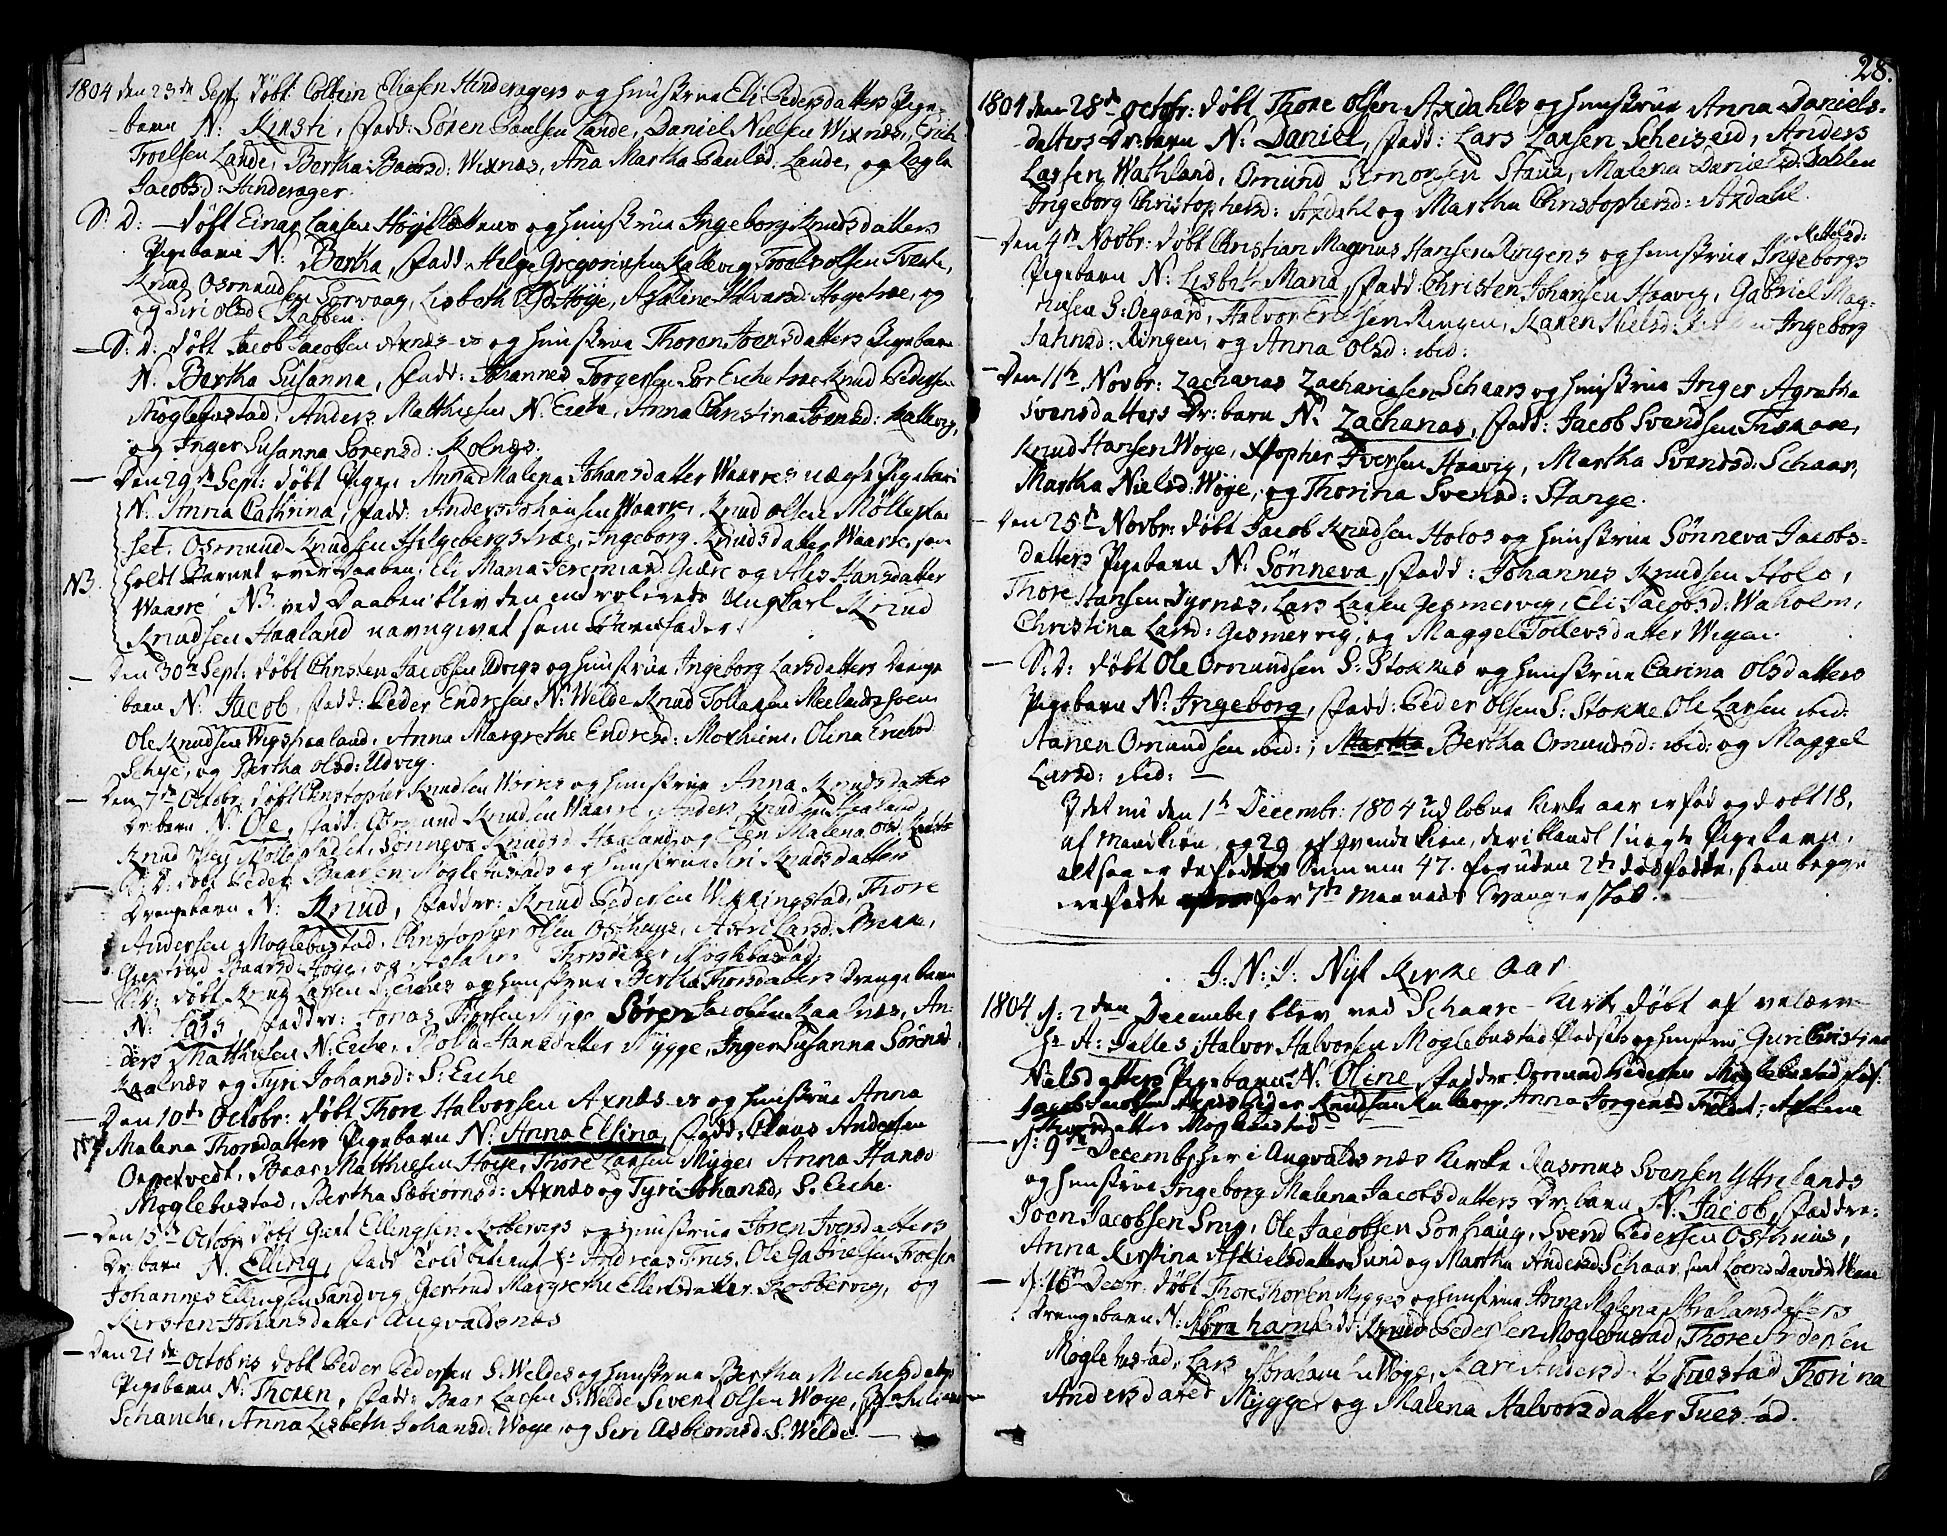 1804 den 23de Sept. døbt Colbein Eliasen Hinderagers og hustrue Eli Pedersdatters Pige-
barn N: Kirsti, fadd: Søren Paulsen Lande, Daniel Nielsen Wixnæs, Erich
Troelsen Lande, Bertha Baarsd: Wixnæs, Ana Martha Paulsd: Lande, og
Jacobsd: Hinderager.
S: D: – døbt Einar Larsen og hustrue Ingeborg Knudsdatters
Pigebarn N: Bertha, fadd: Helge Gregoriusen Kallevig, Troels Olsen Tveite,
Knud Osmundsen Sørvaag, Lisbeth Høie, Halvarsd: og
og Siri Olsd: Rabben.
– S: D: døbt Jacob Jacobsen Axnæs og hustrue Thoren Joensdatters Pigebarn
N: Bertha Susanna, fadd: Johannes Torgersen Sør Eiche Knud Pedersen
Moglebustad, Anders Matthiesen N: Eiche, Anna Christina Kallevig,
og Inger Susanna Sørensd: Kolnæs.
– Den 29de Sept: døbt Pigen Anna Malena Johansdatter Waarres uægte Pigebarn
N: Anna Cathrina, fadd: Anders Johansen Waarre, Knud Olsen Møllepla
set. Osmund Knudsen Helgebergs Ingeborg Knudsdatter Waarre, som
NB. holdt Barnet over Daaben, Eli Maria og Alis Hansdatter
Waarre. NB. ved Daaben blev den enrolerede Ung Karl Knud
Knudsen Haaland navngivet som Barnefader.
– Den 30te Sept: døbt Christen Jacobsen Udvigs og hustrue Ingeborg Larsdatters Drenge
barn N: Jacob, fadd: Peder Endresen N: Welde Knud
Ole Knudsen Wigshaaland, Anna Margrethe Endresd: Moxheim, Olina Erichsd
og Bertha Olsd: Udvig.
– Den 7de Octobr. døbt Christopher Knudsen og hustrue Anna Knudsdatters
Dr: barn N: Ole, fadd: Osmund Knudsen Waarre, Anders Knudsen Haaland,
Knud Sønneva Knudsd Haaland, og Elen Malena
– S: D: døbt Peder Baarsen Moglebustads og hustrue Siri Knudsdatters
Drengebarn N: Knud, fadder: Knud Pedersen Wikkingstad, Thore
Andersen Moglebustad, Christopher Olsen Østhuus, Astri Larsd:
Giertrud Baarsd: Høie, og Thorsdatter Moglebustad
– S: D: døbt Knud Larsen S: Eiches og hustrue Bertha Thorsdatters Drengebarn
N: Lars, fadder: Jonas Søren Jacobsen Kaalnæs, An-
ders Matthiesen N: Eiche, Hansdatter Mygge, Inger Susanna Sørensd
Kaalnæs og Tyri Johansd: S: Eiche
– Den 10de Octobr: døbt Thore Halvorsen Axnæs og hustrue Anna
Malena Thorsdatters Pigebarn N: Anna Elsina, fadd: Claus Andersen
Baar Matthiesen Høie, Thore Larsen Mygge, Anna Hansd
Moglebustad, Bertha Axnæs og Tyri Johansd, S. Eiche.
– Den Octobr døbt Giert Ellingsen Kobbervigs og hustrue Joren Iversdatters
Dr: barn N. Elling, fadd Andreas Friis, Ole Gabrielsen
Johannes Ellingsen Sandvig, Giertrud Margrethe Ellertsdatter Kobbervig, og
Kirsten Johansdatter Augvaldsnæs
– Den 21de Octobris døbt Peder Pedersen S. Weldes og hustrue Bertha Michelsdatters
Pigebarn N: Thoren, fadd: Baar Larsen S. Welde Sivert Olsen Woye,
Schanche, Anna Lisbeth Johansd: Woye, og Siri Asbiørnsd: S. Welde. –
28.
1804 den 28de Octobr: døbt Thore Olsen Axdahls og hustrue Anna Daniels-
datters Dr: barn N: Daniel, fadd: Lars Larsen Scheiseid, Anders
Larsen Wathland, Omund Simonsen Staua, Malena Danielsd: Dahlen
Ingeborg Christophersd: Axdahl og Martha Christophersd: Axdahl.
– Den 4de Novbr: døbt Christian Magnus Hansen Ringens og hustrue Ingeborgs
Pigebarn N: Lisbet Maria, fadd: Christen Johansen Haavig, Gabriel Mag-
nusen S: Øegaard, Halvor Ericsen Ringen, Karen Nielsd: Ingeborg
Jahnsd: Ringen, og Anna Olsd: ibid:
– Den 11te Novbr: Zacharias Zachariasen Schaars og hustrue Inger Agratha
Svensdatters Dr: barn N: Zacharias, fadd: Jacob Svendsen
Knud Hansen Woye, Xstopher Iversen Haavig, Martha Svendsd: Schaar,
Martha Nielsd: Woye, og Thorina Svensd: Stange.
– Den 25de Novbr: døbt Jacob Knudsen Holos og hustrue Sønneva Jacobs-
datters Pigebarn N: Sønneva, fadd: Johannes Knudsen Holo,
Thore Hansen Dyrnæs, Lars Larsen Gesmervig, Eli Jacobsd: Waholm,
Christina Larsd: Gesmervig, og Maggel Tollevsdatter
– S: D: døbt Ole Omundsen S: Stoknes og hustrue Carina Olsdatters
Pigebarn N: Ingeborg, fadd: Peder Olsen S: Stokke Ole Larsen ibid:
Aanen Omundsen ibid:, Bertha Omundsd: ibid: og Maggel
Larsd: ibid: –
I det nu den 1te Decembr: 1804 udløbne Kirke aar er fød og døbt 18,
af Mandkiøn, og 29 af qvindekiøn, deriblandt 1 uægte Pigebarn,
altsaa er de fødtes Summen 47. foruden 2de dødfødte, som begge
ere fødte for 7de Maaneds Svangerskab.
J: N: J: Nyt Kirke Aar
1804. d: 2den December, blev ved Schaare Kirke døbt af velærv
Hr A: Dalles, Halvor Halvorsen Moglebustad Pladsets og hustrue Guri Christina
Nielsdatters Pigebarn N: Oline, fadder Osmund Pedersen Moglebustad
Jacob Jacobsen Peder Knudsen Anna Torgersd
Moglebustad
– d: 9de Decemb, her i Augvaldsnæs Kirke Rasmus Svensen Ytrelands
og hustrue Ingeborg Malena Jacobsdatters Dr: barn N: Jacob, faddre:
Joen Jacobsen Snig, Ole Jacobsen Sørhaug, Svend Pedersen Østhuus,
Anna Kirstina Askielsdatter Sund og Martha Andersd Schaar, samt Loens Davids
– d: 16de Decbr: døbt Thore Thorsen Mygges og hustrue Anna Malena Abrahamsdatters
Drengebarn N: Abraham fadd: Knud Pedersen Moglebustad, Thore Andersen
Moglebustad, Lars Abrahamsen Woge, Kari Andersd: Tuestad Thorina
Andersdatter Mygge og Malena Halvorsdatter Tuestad.